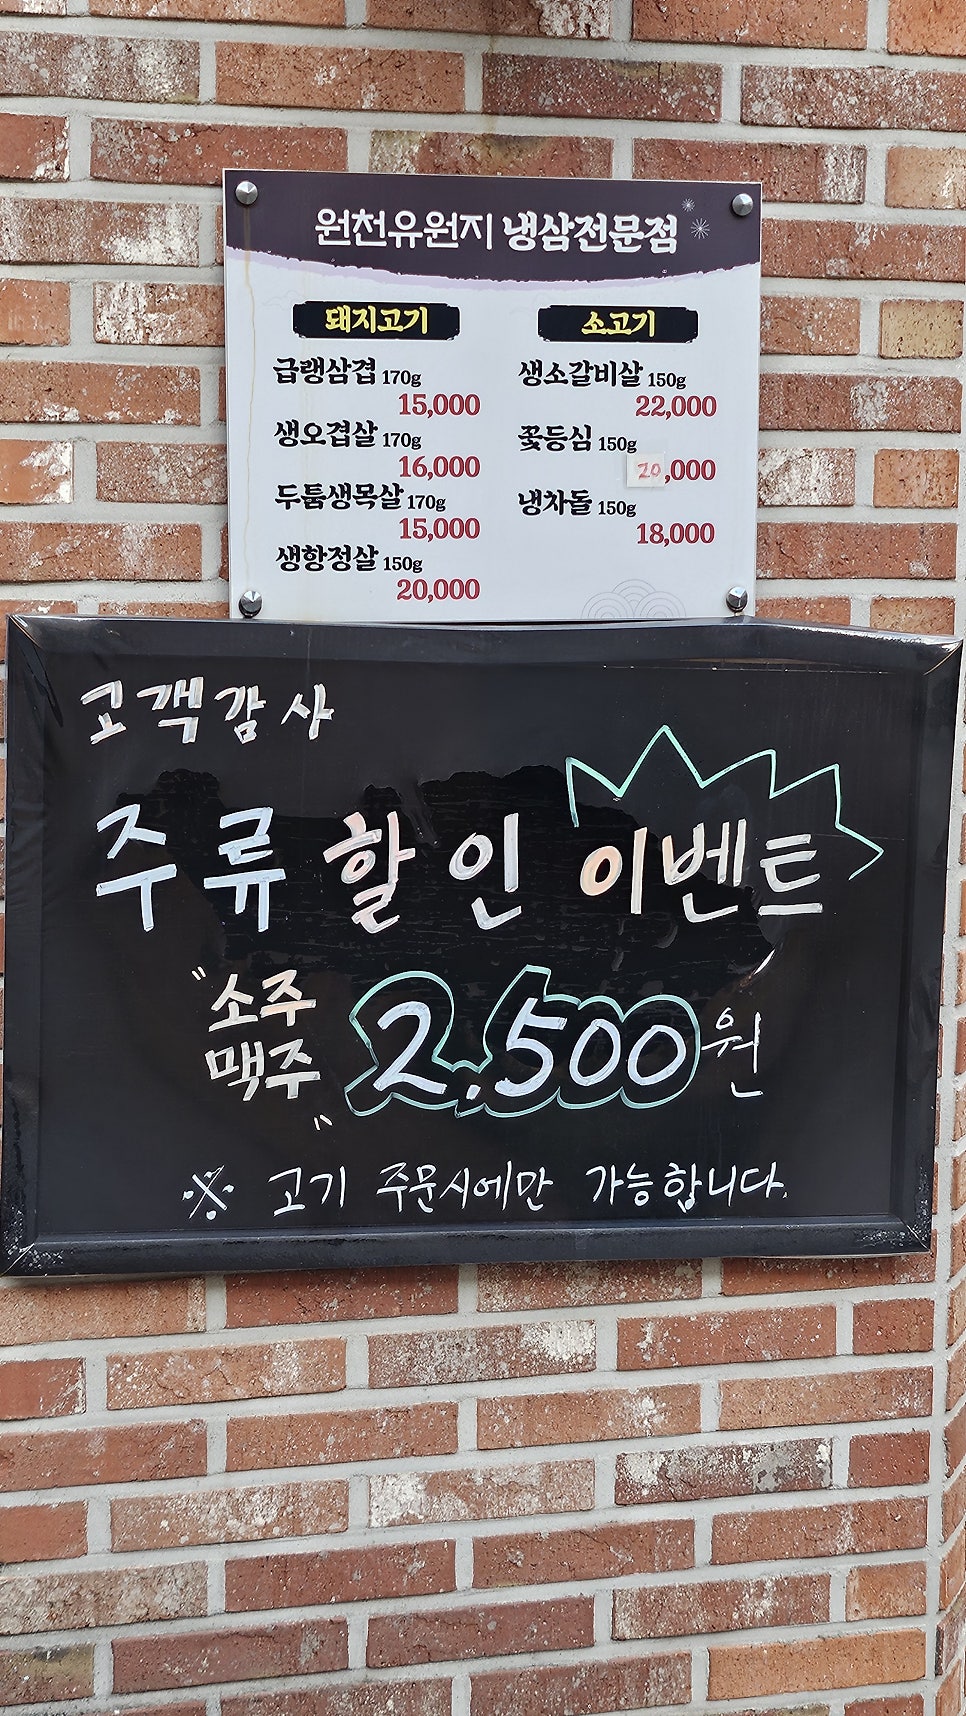 원천유원지 냉삼전문점
돼지고기
급랭삼겹 170g
15,000
생오겹살 170g
16,000
두툼생목살 170g
15,000
생항정살 150g
20,000
소고기
생소갈비살 150g
22,000
꽃등심 150g
20,000
냉차돌 150g
18,000
고객감사
주류 할인 이벤트
"소주
맥주"
2.500원
※ 고기 주문시에만 가능합니다.